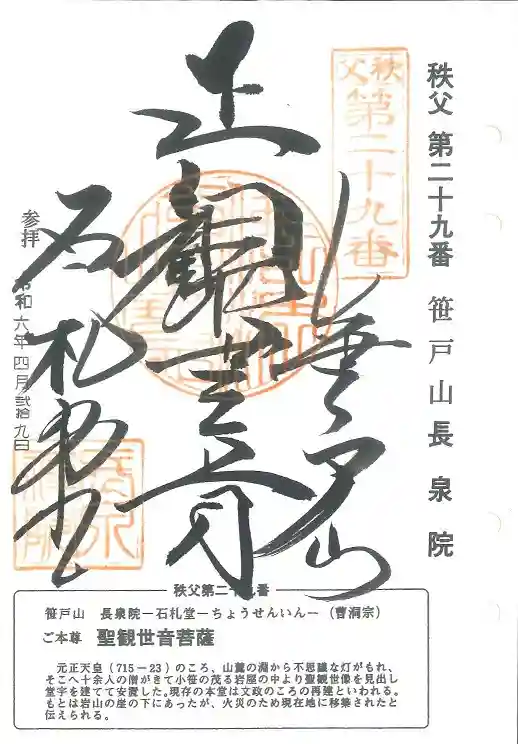 秩父 第二十九番 笹戸山長泉院
秩父
第二十九番
正観世音
石札堂
参拝 令和六年四月弐拾九日
秩父第二十九番
笹戸山 長泉院－石札堂－ちょうせんいん－（曹洞宗）
ご本尊 聖観世音菩薩
元正天皇（715－23）のころ、山麓の淵から不思議な灯がもれ、
そこへ十余人の僧がきて小笹の茂る岩屋の中より聖観世像を見出し
堂宇を建てて安置した。現存の本堂は文政のころの再建といわれる。
もとは岩山の崖の下にあったが、火災のため現在地に移築されたと
伝えられる。